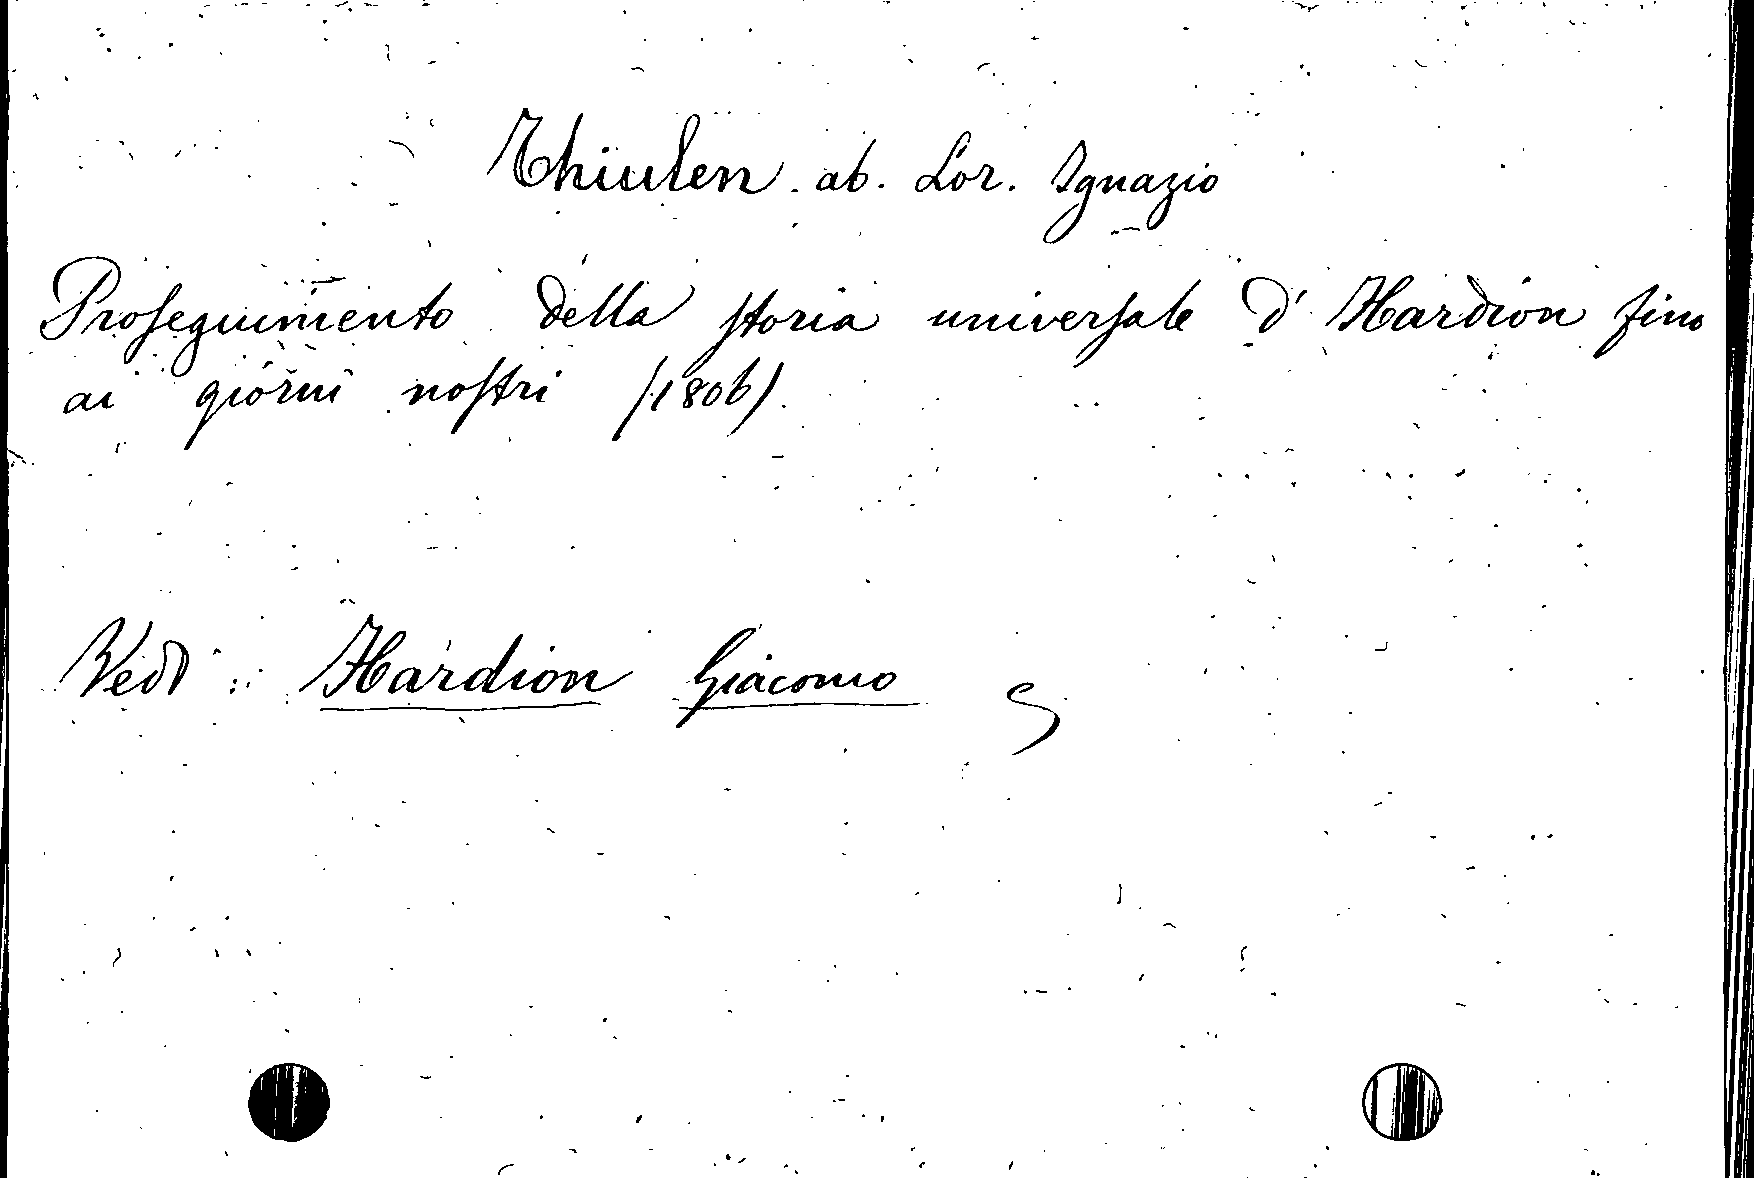 Thiulen ab. Lor. Ignazio
Proseguimento della storia universale d'Hardion fino
ai giorni nostri (1806)
Vedi: Hardion Giacomo